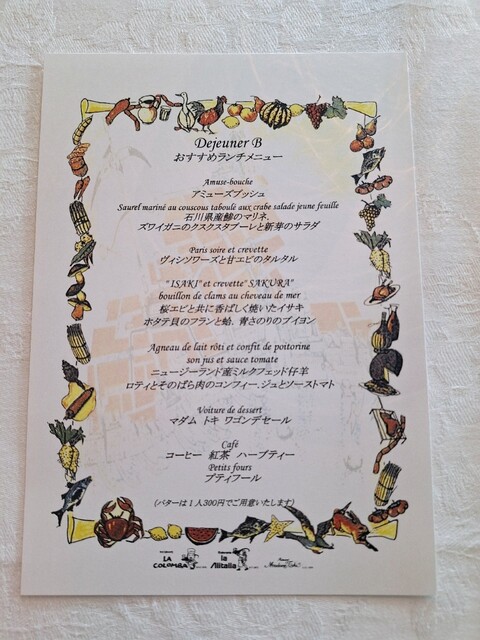 Dejeuner B
おすすめランチメニュー
Amuse-bouche
アミューズブッシュ
Saurel mariné au couscous taboulé aux crabe salade jeune feuille
石川県産鯵のマリネ.
ズワイガニのクスクスタブーレと新芽のサラダ
Paris soire et crevette
ヴィシソワーズと甘エビのタルタル
"ISAKI" et crevette" SAKURA"
bouillon de clams au cheveau de mer
桜エビと共に香ばしく焼いたイサキ
ホタテ貝のフランと蛤. 青さのりのブイヨン
Agneau de lait rôti et confit de poitorine
son jus et sauce tomate
ニュージーランド産ミルクフェッド仔羊
ロティとそのばら肉のコンフィー.ジュとソーストマト
Voiture de dessert
マダム トキ ワゴンデセール
Café
コーヒー 紅茶 ハーブティー
Petits fours
プティフール
(バターは1人300円でご用意いたします)
LA COLOMBA
la Alitalia
Madame Toki